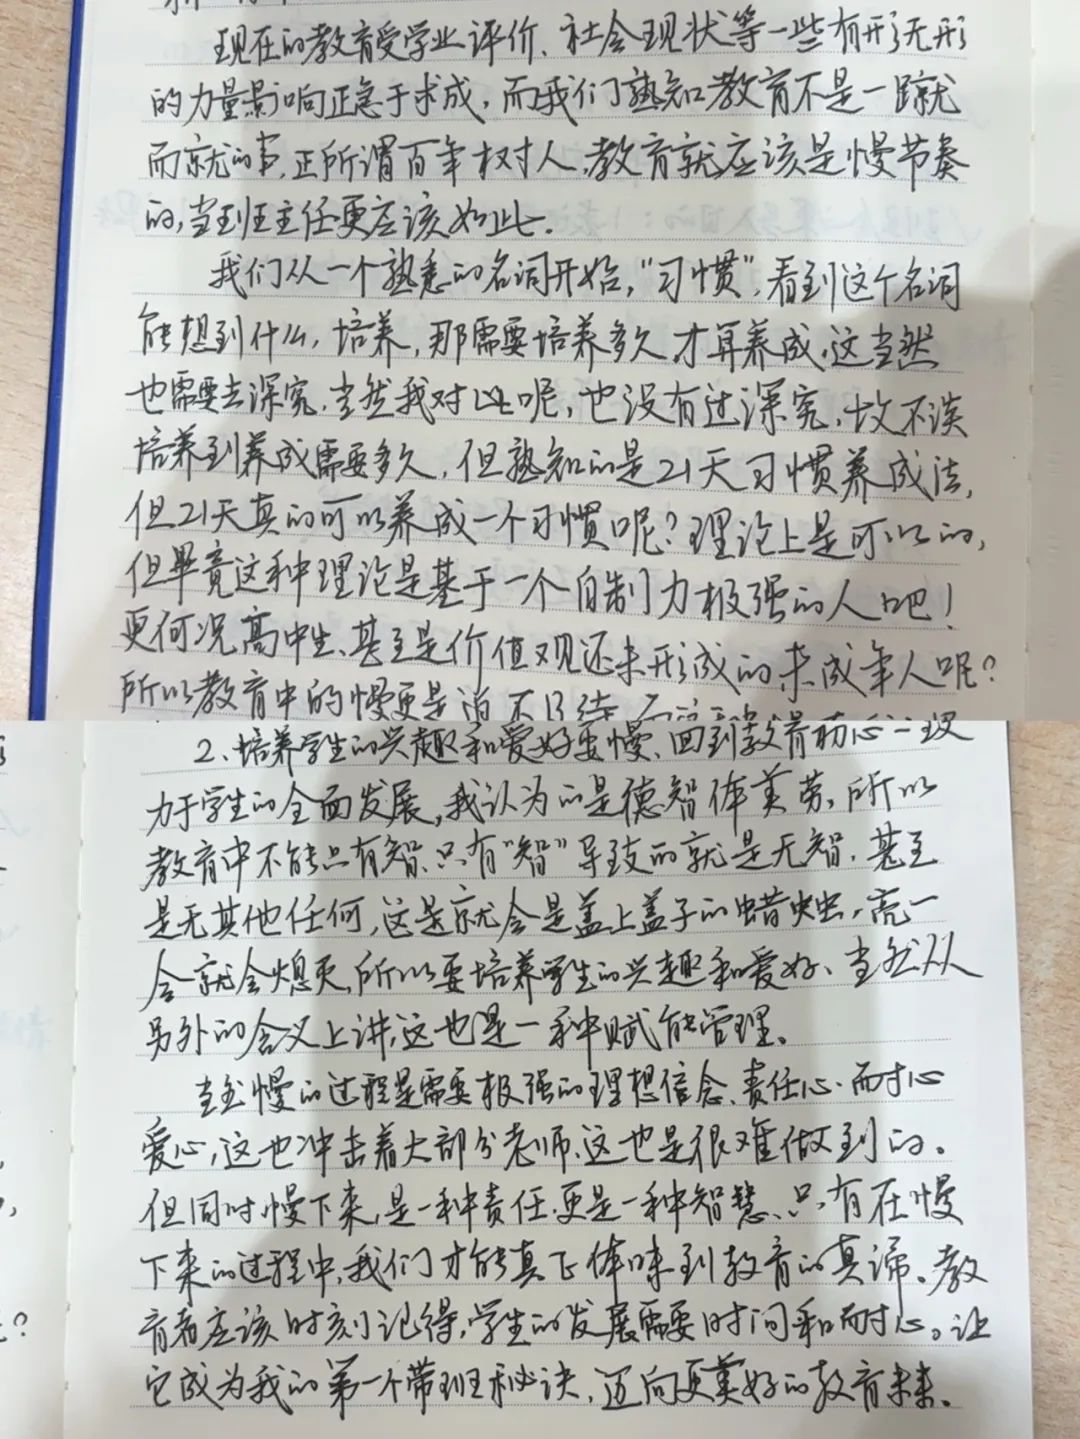 现在的教育受学业评价、社会现状等一些有形无形
的力量影响正急于求成，而我们熟知教育不是一蹴
而就的事，正所谓百年树人，教育就应该是慢节奏
的，当到班主任更应该如此。
我们从一个熟悉的名词开始，“习惯”，看到这个名词
能想到什么，培养，那需要培养多久才算养成，这当然
也需要去深究，当然我对此呢，也没有过深究，故不谈
培养到养成需要多久，但熟知的是21天习惯养成法，
但21天真的可以养成一个习惯呢？理论上是可以的，
但毕竟这种理论是基于一个自制力极强的人吧！
更何况高中生、甚至是价值观还未形成的未成年人呢？
所以教育中的慢更是迫不及待
2、培养学生的兴趣和爱好要慢、回到教育初心—致
力于学生的全面发展，我认为的是德智体美劳，所以
教育中不能只有智，只有“智”导致的就是无智，甚至
是无其他任何，这是就会是盖上盖子的蜡烛，亮一
会就会熄灭，所以要培养学生的兴趣和爱好、当然从
另外的含义上讲，这也是一种赋能管理。
当然慢的过程是需要极强的理想信念、责任心、耐心
爱心，这也冲击着大部分老师，这也是很难做到的。
但同时慢下来，是一种责任，更是一种智慧、只有在慢
下来的过程中，我们才能真正体味到教育的真谛。教
育者应该时刻记得，学生的发展需要时间和耐心。让
它成为我的第一个带班秘诀，迈向更美好的教育未来。